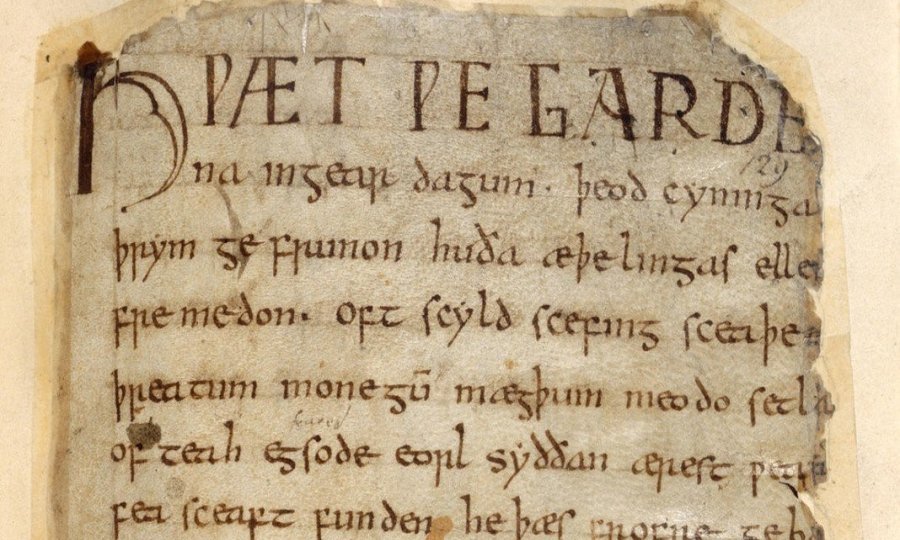 HǷÆT ǷE GARDE
na ingear dagum. þeod cyninga
129
þrym ge frunon huða æþelingas elle
fre medon. oft scyld scefing sceaþe
þreatum monegū mægþum meodo setla
of teah egsode eorl syððan ærest ƿear
fea sceaft funden he þæs frofre geba